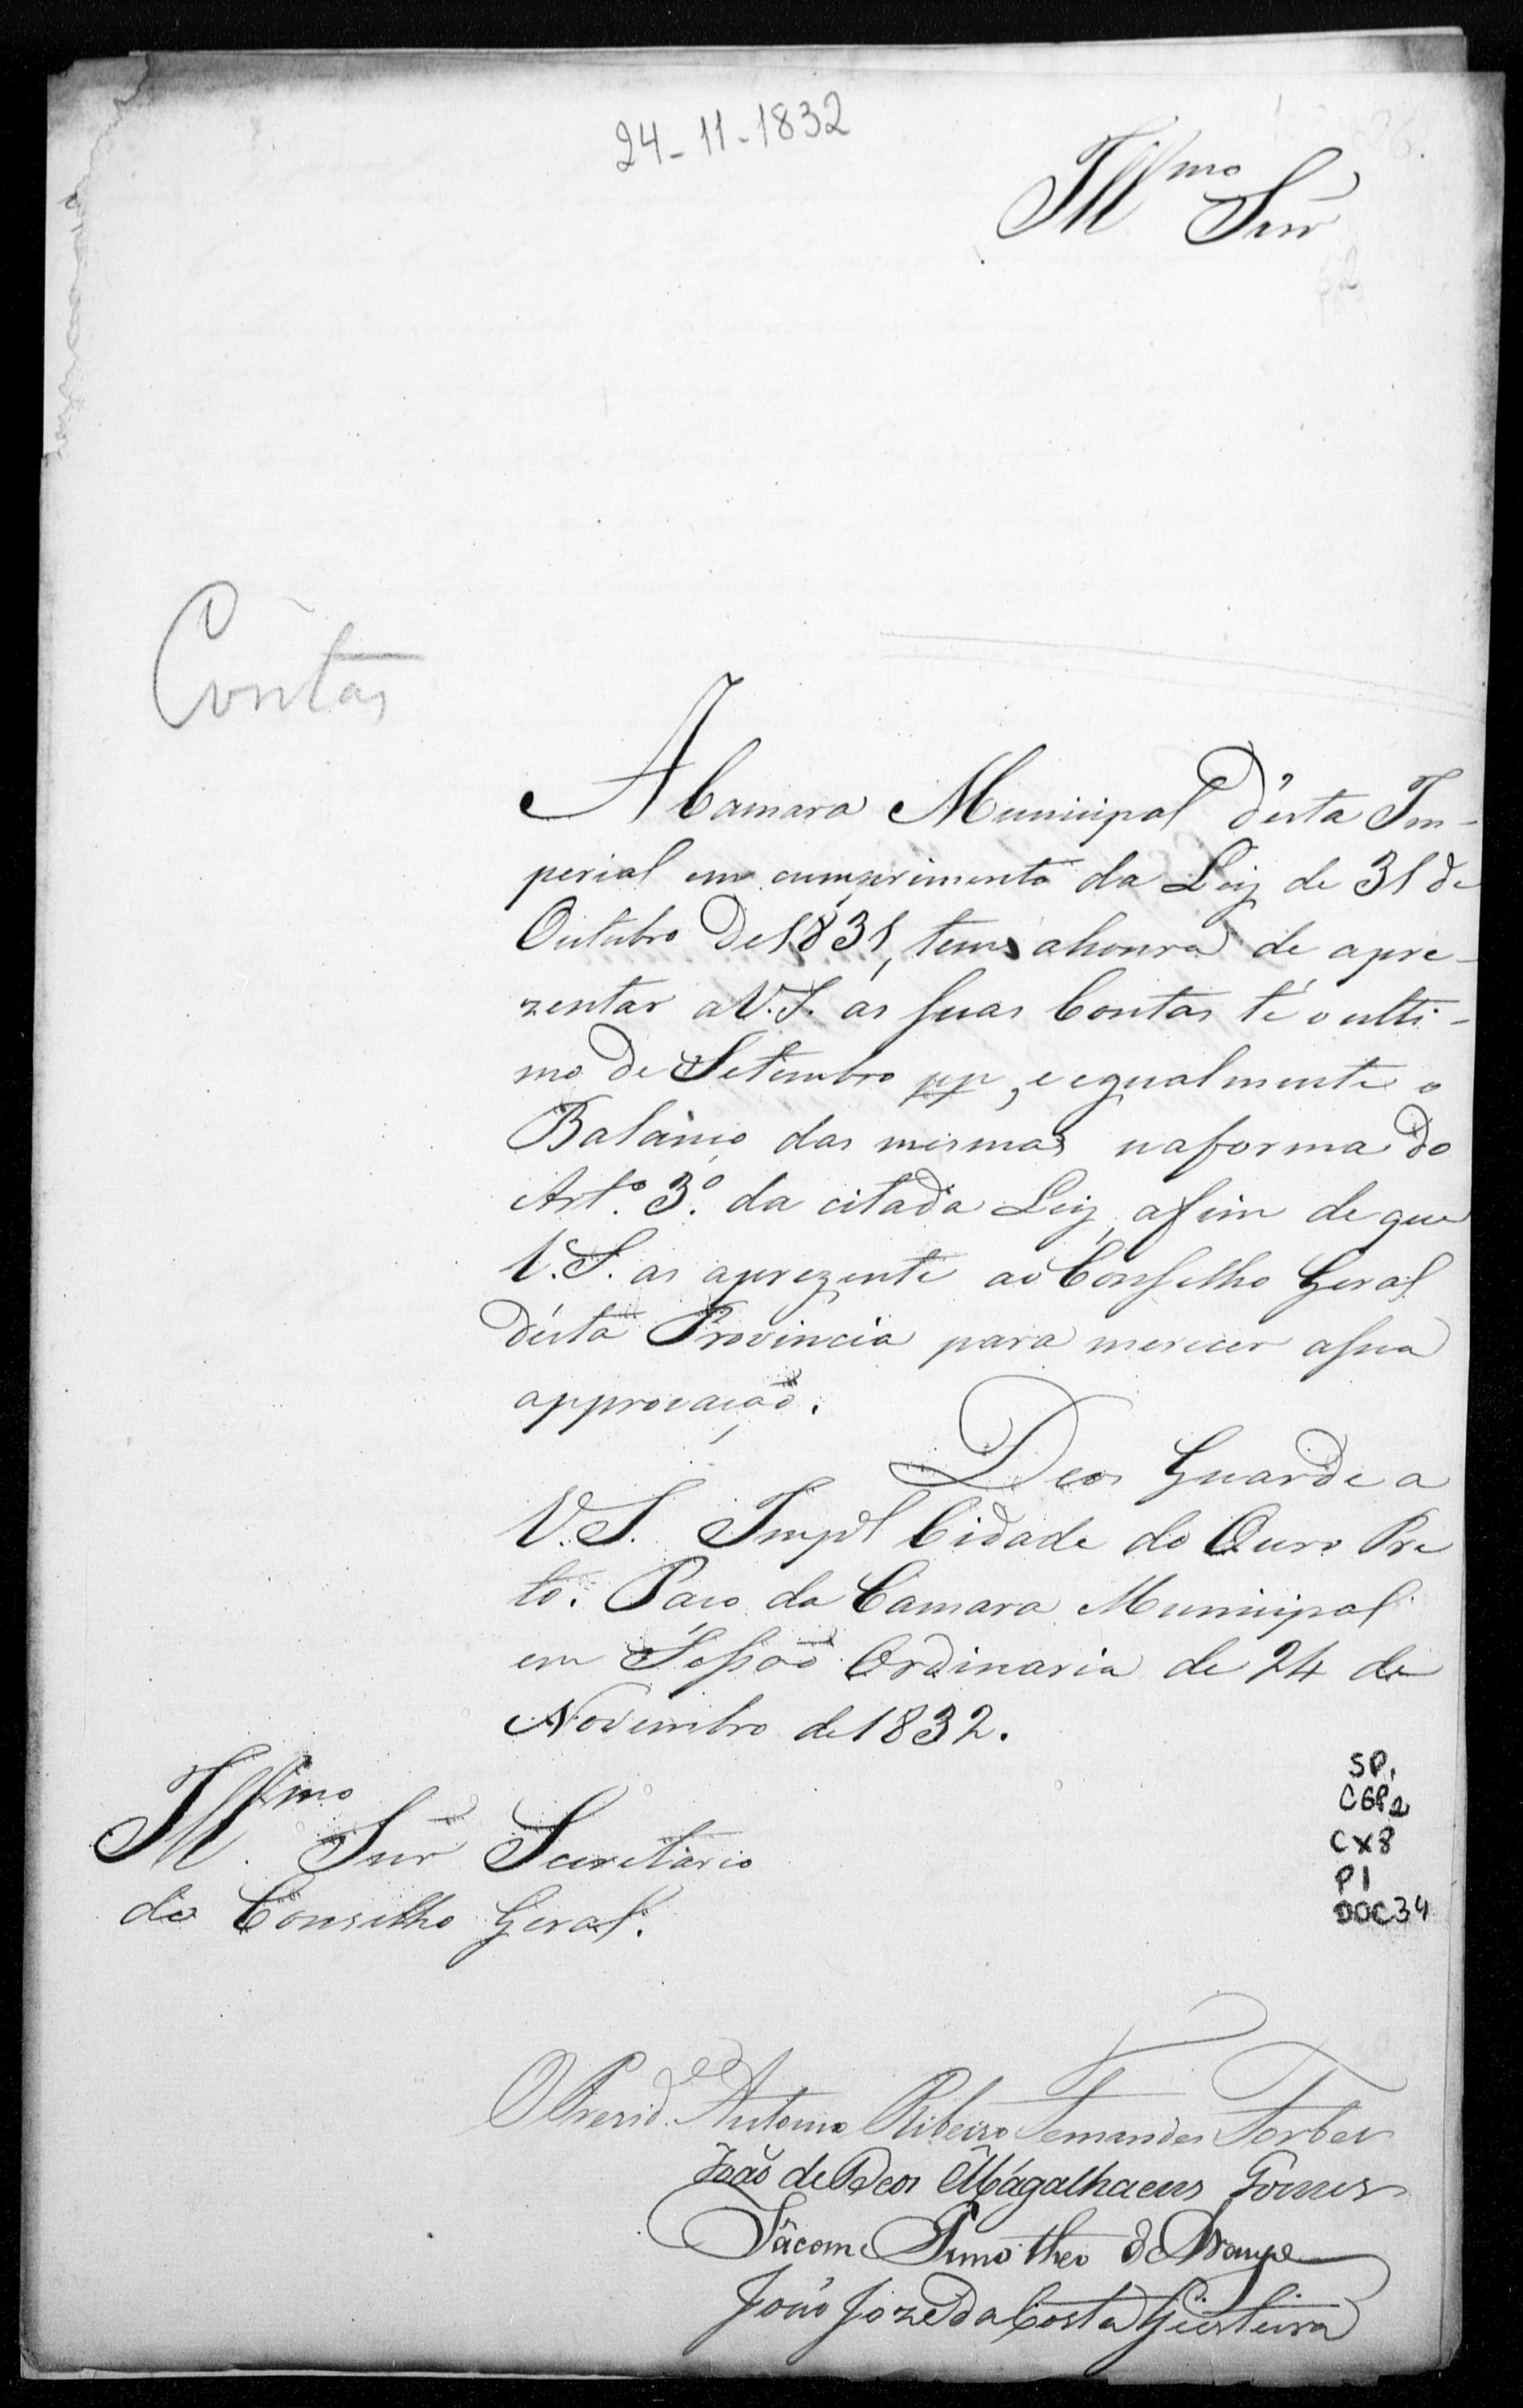 24-11-1832
Illmo Snr
Contas
A Camara Municipal d'esta Im-
perial em cumprimento da Ley de 31 de
Outubro de 1831, tem ahonra de apre-
zentar a V.S. as suas Contas té o ulti-
mo de Setembro pp, e egualmente o
Balanço das mesmas naforma do
Art.º 3.º da citada Ley, afim de que
V.S. as aprezente ao Conselho Geral
d'esta Provincia para merecer asua
approvação.
Deos Guarde a
V.S. Impl Cidade do Ouro Pre
to. Paço da Camara Municipal
em Sessão Ordinaria de 24 de
Novembro de 1832.
Illmo Snr Secretario
do Conselho Geral.
SP.
CGP2
CX8
P1
DOC34
O Presid.e Antonio Ribeiro Fernandes Forbes
João de Deos Magalhaens Gomes
João Joze da Costa